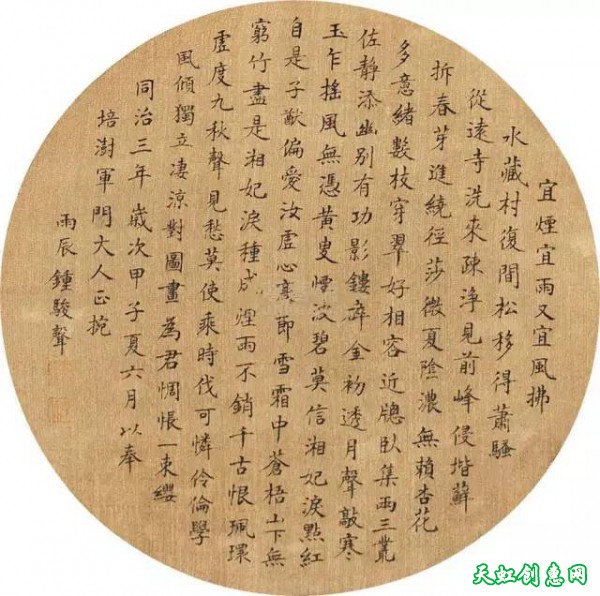 宜煙宜雨又宜風拂
水藏村復間松移得蕭騷
從遠寺洗來疎淨見前峰侵堦蘚
拆春芽進繞徑莎微夏陰濃無賴杏花
多意緒數枝穿翠好相容近牕臥集兩三叢
佐靜添幽别有功影鏤碎金初透月聲敲寒
玉乍搖風無憑黃叟標波碧莫信湘妃淚點紅
自是子猷偏愛汝虛心高節雪霜中蒼梧山下無
窮竹盡是湘妃淚種成煙雨不銷千古恨珮環
虛度九秋聲見愁莫使乘時伐可憐伶倫學
風傾獨立凄涼對圖畫為君惆悵一束纓
同治三年歲次甲子夏六月以奉
培澍軍門大人正
雨辰鍾駿聲
天虹创意网